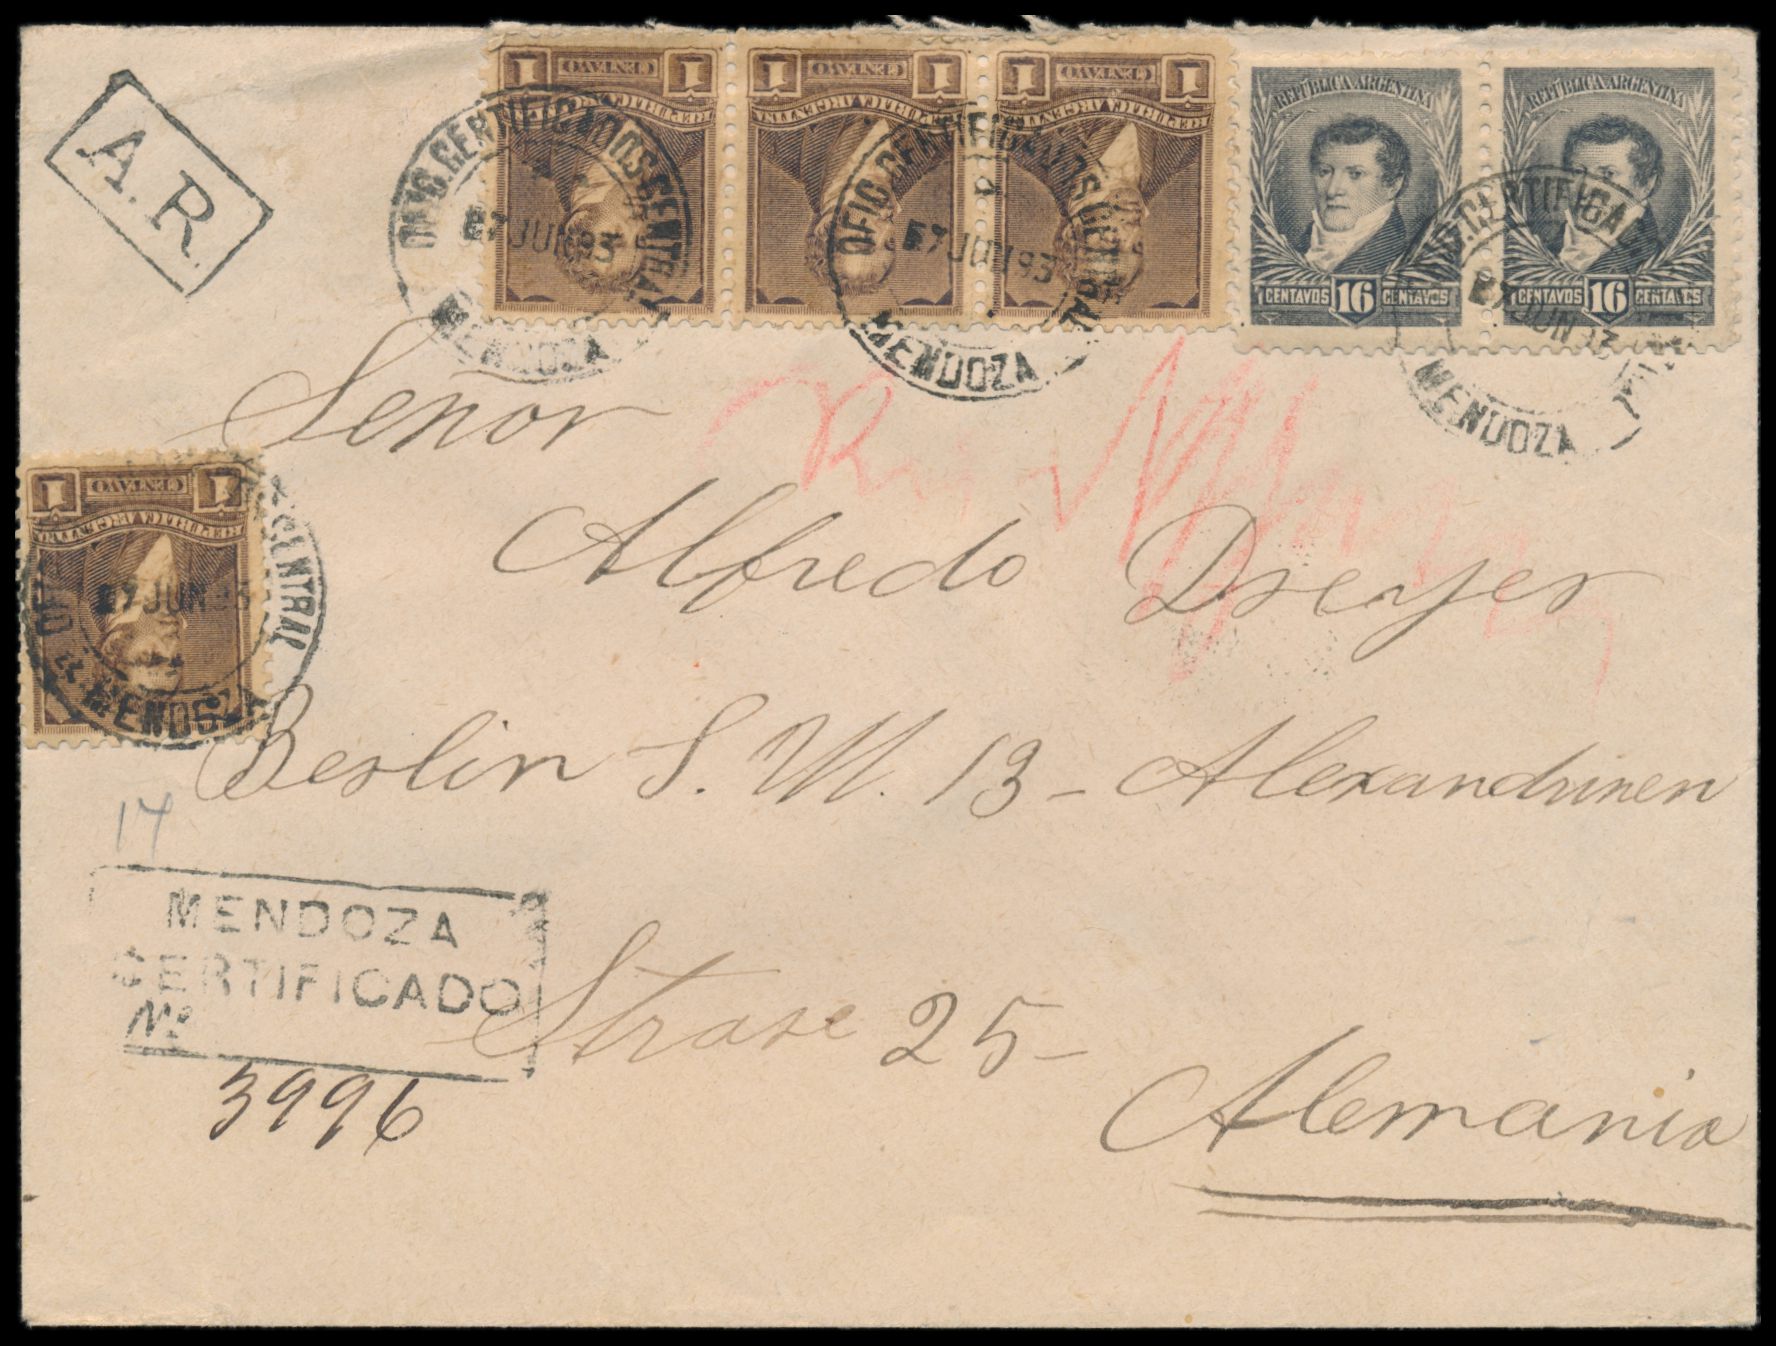 A.R.
1 CENTAVO 1
REPUBLICA ARGENTINA
1 CENTAVO 1
REPUBLICA ARGENTINA
1 CENTAVO 1
REPUBLICA ARGENTINA
REPÚBLICA ARGENTINA
CENTAVOS 16 CENTAVOS
REPÚBLICA ARGENTINA
CENTAVOS 16 CENTAVOS
OFIC. CERTIFICADOS CENTRAL
27 JUN 93
MENDOZA
OFIC. CERTIFICADOS CENTRAL
27 JUN 93
MENDOZA
OFIC. CERTIFICADOS
27 JUN 93
MENDOZA
Señor
Alfredo Dreyer
1 CENTAVO 1
REPUBLICA ARGENTINA
CENTRAL
27 JUN 93
MENDOZA
Berlin S. W. 13 - Alexandrinen
14
MENDOZA
CERTIFICADO
Nº
3996
Strase 25 -
Alemania